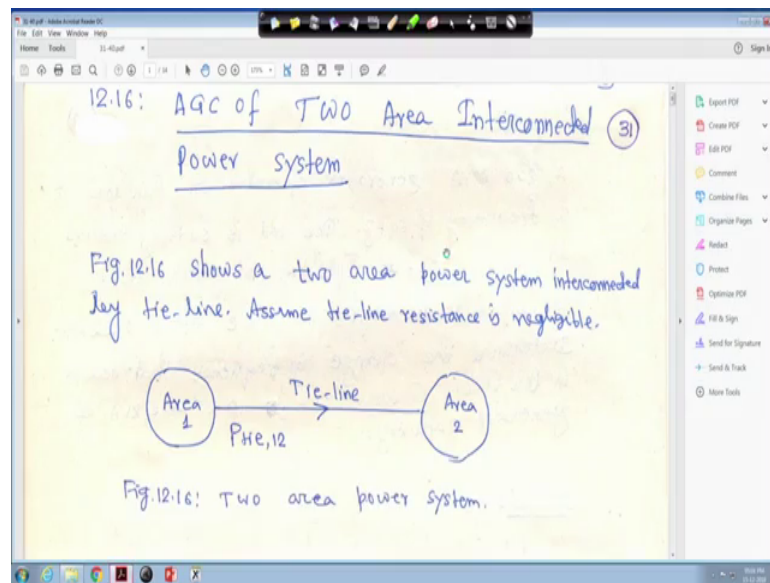 31-40.pdf - Adobe Acrobat Reader DC
File Edit View Window Help
Home Tools 31-40.pdf ×
Sign In
1 / 14
177%
12.16: AGC of Two Area Interconnected
Power system
31
Fig. 12.16 shows a two area power system interconnected
by tie-line. Assume tie-line resistance is negligible.
Area
1
Tie-line
Ptie,12
Area
2
Fig. 12.16: Two area power system.
Export PDF
Create PDF
Edit PDF
Comment
Combine Files
Organize Pages
Redact
Protect
Optimize PDF
Fill & Sign
Send for Signature
Send & Track
More Tools